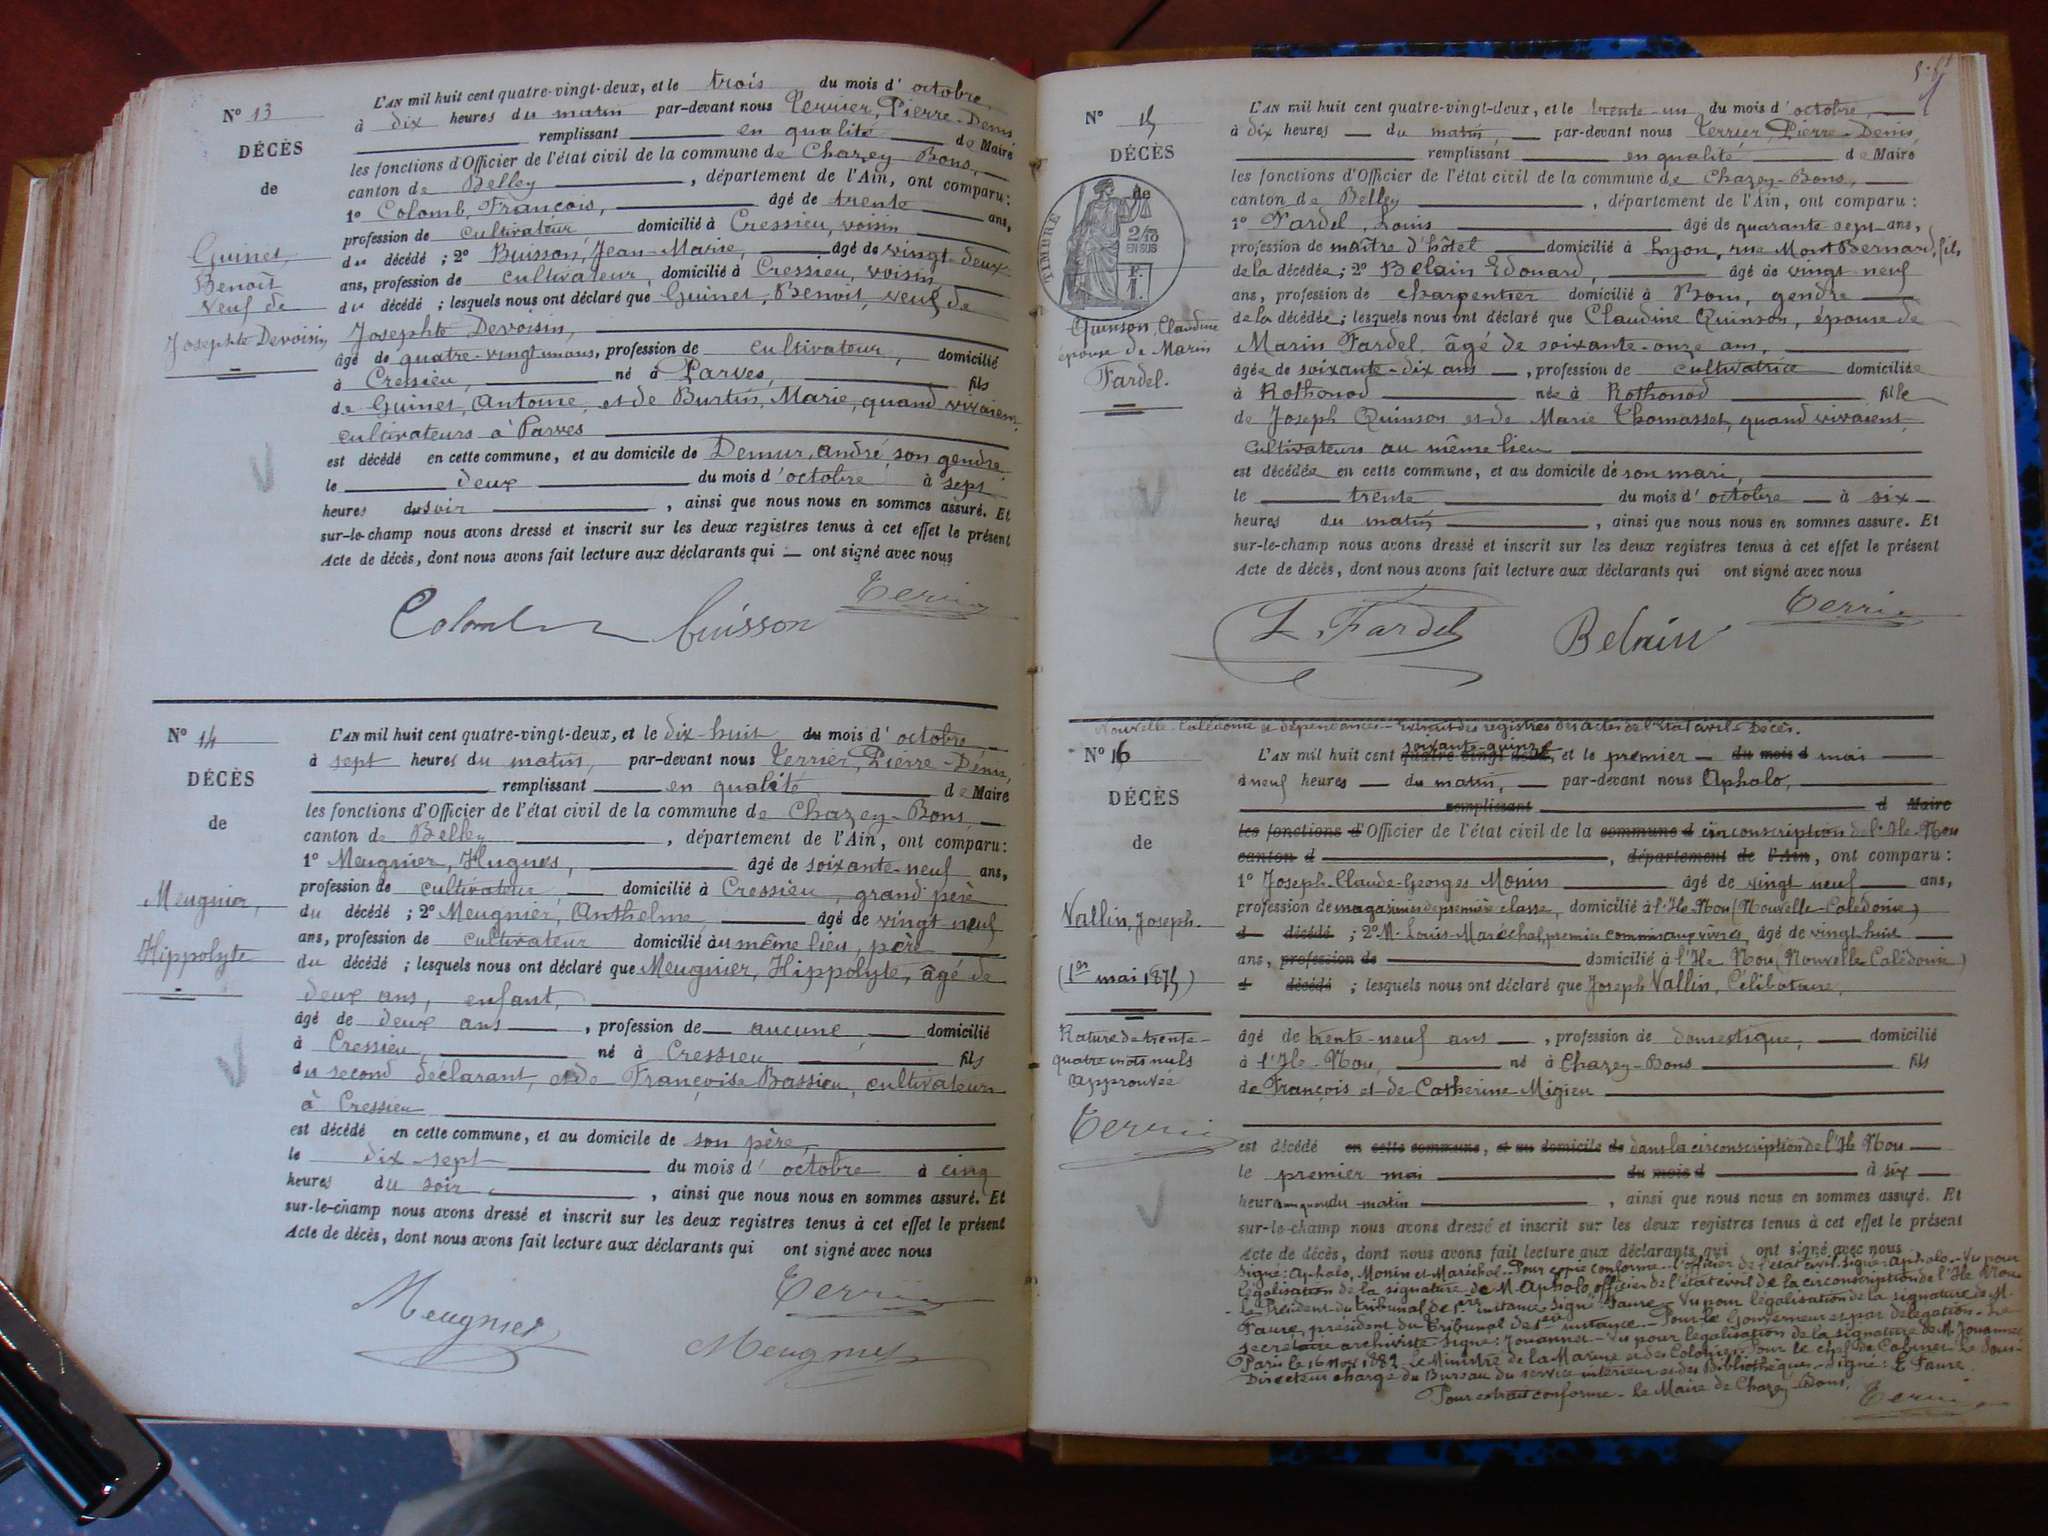 N° 13
DÉCÈS
de
Guinet,
Benoît
veuf de
Josephte Devoisin
L'AN mil huit cent quatre-vingt-deux, et le trois du mois d'octobre
à dix heures du matin par-devant nous Terrier, Pierre-Denis
remplissant en qualité de Maire
les fonctions d'Officier de l'état civil de la commune de Chazey-Bons,
canton de Belley, département de l'Ain, ont comparu :
1° Colomb, François, âgé de trente ans,
profession de cultivateur domicilié à Cressieu, voisin
du décédé ; 2° Buisson, Jean-Marie, âgé de vingt-deux
ans, profession de cultivateur, domicilié à Cressieu, voisin
du décédé ; lesquels nous ont déclaré que Guinet, Benoit, veuf de
Josephte Devoisin,
âgé de quatre-vingt un ans, profession de cultivateur, domicilié
à Cressieu, né à Parves, fils
de Guinet, Antoine, et de Burtin, Marie, quand vivaient
cultivateurs à Parves
est décédé en cette commune, et au domicile de Demur, andré, son gendre
le deux du mois d'octobre à sept
heures du soir, ainsi que nous nous en sommes assuré. Et
sur-le-champ nous avons dressé et inscrit sur les deux registres tenus à cet effet le présent
Acte de décès, dont nous avons fait lecture aux déclarants qui ont signé avec nous
Colomb Buisson Terrier
N° 14
DÉCÈS
de
Meugnier,
Hippolyte
L'AN mil huit cent quatre-vingt-deux, et le dix-huit du mois d'octobre,
à sept heures du matin, par-devant nous Terrier, Pierre-Denis,
remplissant en qualité de Maire
les fonctions d'Officier de l'état civil de la commune de Chazey-Bons,
canton de Belley, département de l'Ain, ont comparu :
1° Meugnier, Hugues, âgé de soixante-neuf ans,
profession de cultivateur domicilié à Cressieu, grand père
du décédé ; 2° Meugnier, Anthelme, âgé de vingt-neuf
ans, profession de cultivateur domicilié au même lieu, père
du décédé ; lesquels nous ont déclaré que Meugnier, Hippolyte, âgé de
deux ans, enfant,
âgé de deux ans, profession de aucune domicilié
à Cressieu, né à Cressieu fils
du second déclarant, et de Françoise Bassieu, cultivateurs
à Cressieu
est décédé en cette commune, et au domicile de son père,
le dix-sept du mois d'octobre à cinq
heures du soir, ainsi que nous nous en sommes assuré. Et
sur-le-champ nous avons dressé et inscrit sur les deux registres tenus à cet effet le présent
Acte de décès, dont nous avons fait lecture aux déclarants qui ont signé avec nous
Meugnier Terrier
Meugnier
N° 15
DÉCÈS
de
TIMBRE
2/10
EN SUS
Quinson, Claudine
épouse de Marin
Fardel.
L'AN mil huit cent quatre-vingt-deux, et le trente-un du mois d'octobre,
à dix heures du matin, par-devant nous Terrier, Pierre-Denis,
remplissant en qualité de Maire
les fonctions d'Officier de l'état civil de la commune de Chazey-Bons,
canton de Belley, département de l'Ain, ont comparu :
1° Fardel, Louis âgé de quarante-sept ans,
profession de maître d'hôtel domicilié à Lyon, rue Mont Bernard, fils
de la décédée ; 2° Belain Edouard, âgé de vingt-neuf
ans, profession de charpentier domicilié à Bons, gendre
de la décédée ; lesquels nous ont déclaré que Claudine Quinson, épouse de
Marin Fardel, âgé de soixante-onze ans,
âgée de soixante-dix ans, profession de cultivatrice domiciliée
à Rothonod née à Rothonod fille
de Joseph Quinson et de Marie Thomasset, quand vivaient
cultivateurs au même lieu
est décédée en cette commune, et au domicile de son mari,
le trente du mois d'octobre à six
heures du matin, ainsi que nous nous en sommes assuré. Et
sur-le-champ nous avons dressé et inscrit sur les deux registres tenus à cet effet le présent
Acte de décès, dont nous avons fait lecture aux déclarants qui ont signé avec nous
L. Fardel Belain Terrier
Nouvelle-Calédonie et dépendances - Extrait des registres des actes de l'Etat civil - Décès.
N° 16
DÉCÈS
de
Vallin, Joseph.
(1er mai 1875)
Rature de trente-
quatre mots nuls
approuvée
Terrier
L'AN mil huit cent quatre-vingt-deux, soixante-quinze et le premier du mois d mai
à neuf heures du matin, par-devant nous Aphalo,
remplissant d Maire
les fonctions d'Officier de l'état civil de la commune d circonscription de l'Ile Nou
canton d, département de l'Ain, ont comparu :
1° Joseph-Claude-Georges Monin âgé de vingt neuf ans,
profession de magasinier de première classe, domicilié à l'Ile Nou (Nouvelle-Calédonie)
d décédé ; 2° M. Louis Maréchal, premier commis aux vivres, âgé de vingt huit
ans, profession de domicilié à l'Ile Nou (Nouvelle Calédonie)
d décédé ; lesquels nous ont déclaré que Joseph Vallin, Célibataire,
âgé de trente-neuf ans, profession de domestique, domicilié
à l'Ile-Nou, né à Chazey-Bons fils
de François et de Catherine Migieu
est décédé en cette commune, et au domicile de dans la circonscription de l'Ile Nou
le premier mai du mois d à six
heures du matin, ainsi que nous nous en sommes assuré. Et
sur-le-champ nous avons dressé et inscrit sur les deux registres tenus à cet effet le présent
Acte de décès, dont nous avons fait lecture aux déclarants qui ont signé avec nous
Signé : Aphalo, Monin et Maréchal - Pour copie conforme - l'officier de l'état civil signé : Aphalo - Vu pour
légalisation de la signature de M. Aphalo, officier de l'état civil de la circonscription de l'Ile Nou
- Le Président du tribunal de 1ère instance signé : Faure - Vu pour légalisation de la signature de M.
Faure, président du Tribunal de 1ère instance - Pour le Gouverneur et par délégation - Le
secrétaire archiviste signé : Jouannet - Vu pour légalisation de la signature de M. Jouannet
Paris le 16 Nov 1882 - Le Ministre de la Marine et des Colonies - Pour le chef de Cabinet Le Sous-
Directeur chargé du Bureau du service intérieur et des Bibliothèques - Signé : E. Faure.
Pour extrait conforme - Le Maire de Chazey-Bons.
Terrier